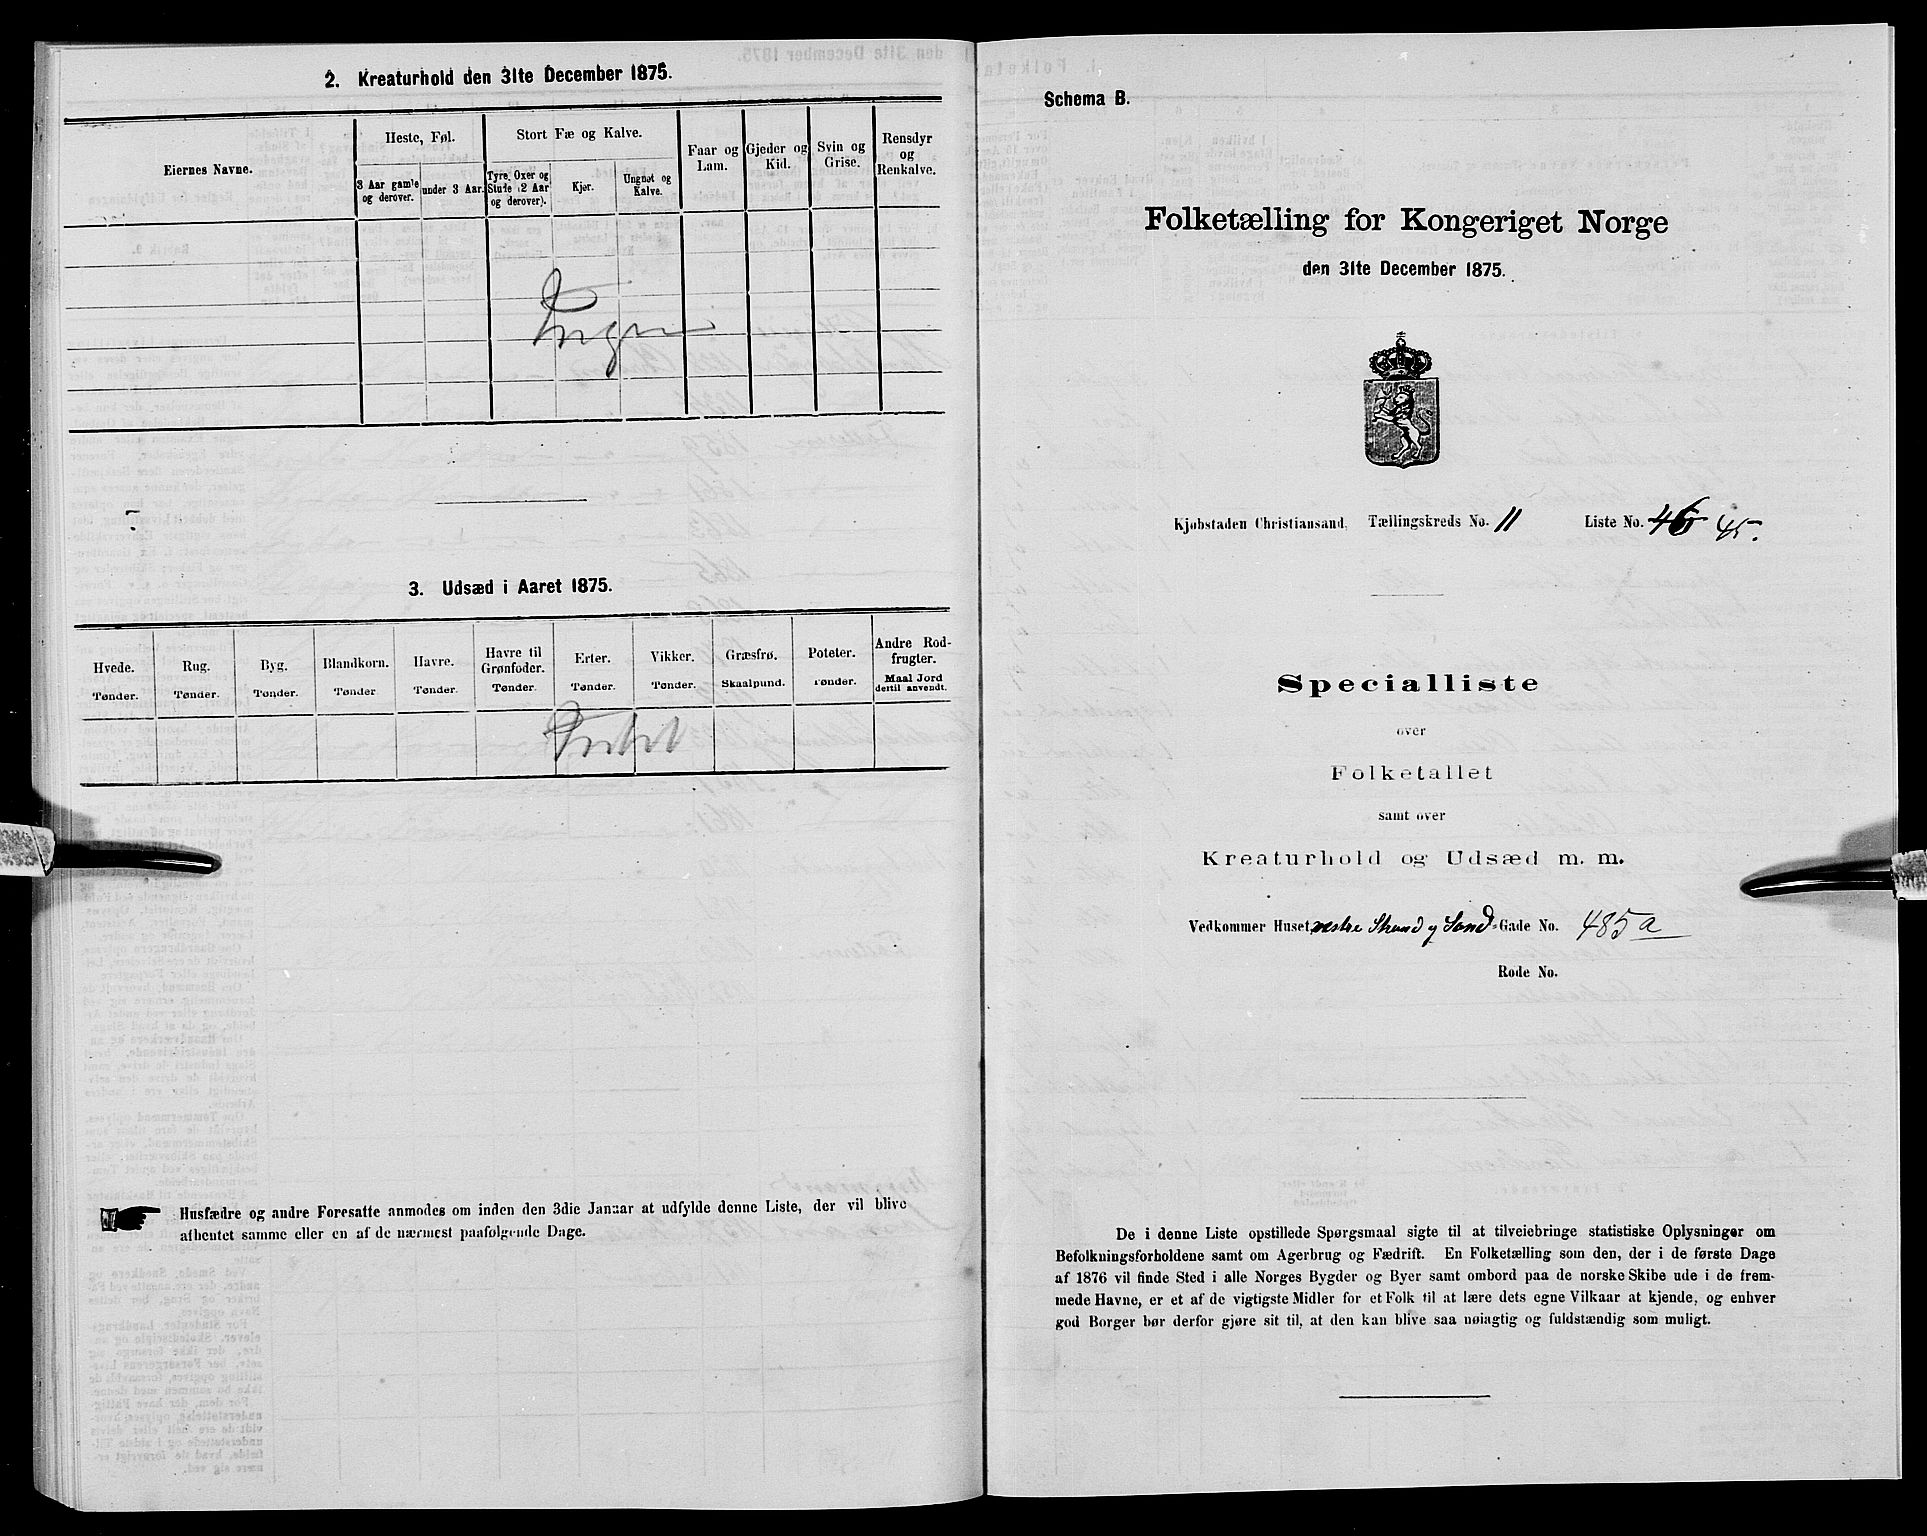 2. Kreaturhold den 31te December 1875.
Eiernes Navne.
Heste, Føl.
3 Aar gamle og derover.
under 3 Aar.
Stort Fæ og Kalve.
Tyre, Oxer og Stude (2 Aar og derover).
Kjør.
Ungnøt og Kalve.
Faar og Lam.
Gjeder og Kid.
Svin og Grise.
Rensdyr og Renkalve.
Ingen
3. Udsæd i Aaret 1875.
Hvede. Tønder.
Rug. Tønder.
Byg. Tønder.
Blandkorn. Tønder
Havre. Tønder.
Havre til Grønfoder. Tønder.
Erter. Tønder.
Vikker. Tønder.
Græsfrø. Skaalpund.
Poteter. Tønder.
Andre Rodfrugter. Maal Jord dertil anvendt.
Intet
Husfædre og andre Foresatte anmodes om inden den 3die Januar at udfylde denne Liste, der vil blive
afhentet samme eller en af de nærmest paafølgende Dage.
Schema B.
Folketælling for Kongeriget Norge
den 31te December 1875.
Kjøbstaden Christiansand, Tællingskreds No. 11 Liste No. 46 45.
Specialliste
over
Folketallet
samt over
Kreaturhold og Udsæd m. m.
Vedkommer Huset vestre Strand og Sand-Gade No. 485a
Rode No.
De i denne Liste opstillede Spørgsmaal sigte til at tilveiebringe statistiske Oplysninger om
Befolkningsforholdene samt om Agerbrug og Fædrift. En Folketælling som den, der i de første Dage
af 1876 vil finde Sted i alle Norges Bygder og Byer samt ombord paa de norske Skibe ude i de frem-
mede Havne, er et af de vigtigste Midler for et Folk til at lære dets egne Vilkaar at kjende, og enhver
god Borger bør derfor gjøre sit til, at den kan blive saa nøiagtig og fuldstændig som muligt.